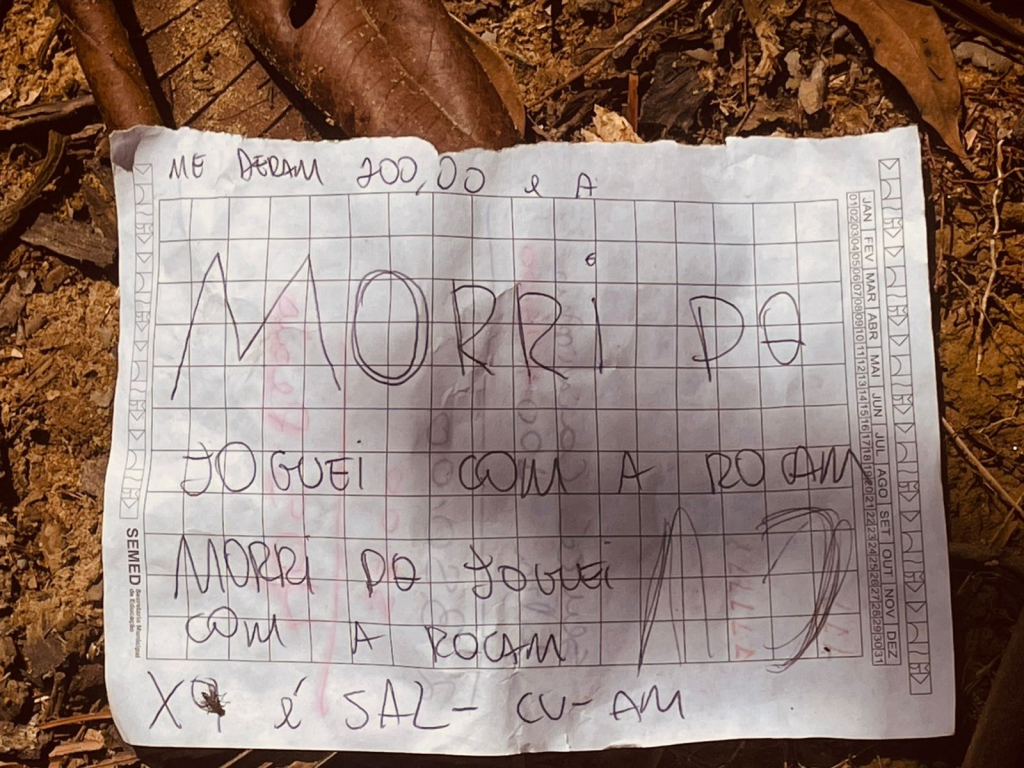 ME DERAM 200,00 e A
MORRi PO
JOGUEi COM A ROCAM
MORRi PO JOGUEi
COM A ROCAM
é SAL- CU- AM
SEMED Secretaria Municipal de Educação
JAN FEV MAR ABR MAI JUN JUL AGO SET OUT NOV DEZ
01 02 03 04 05 06 07 08 09 10 11 12 13 14 15 16 17 18 19 20 21 22 23 24 25 26 27 28 29 30 31